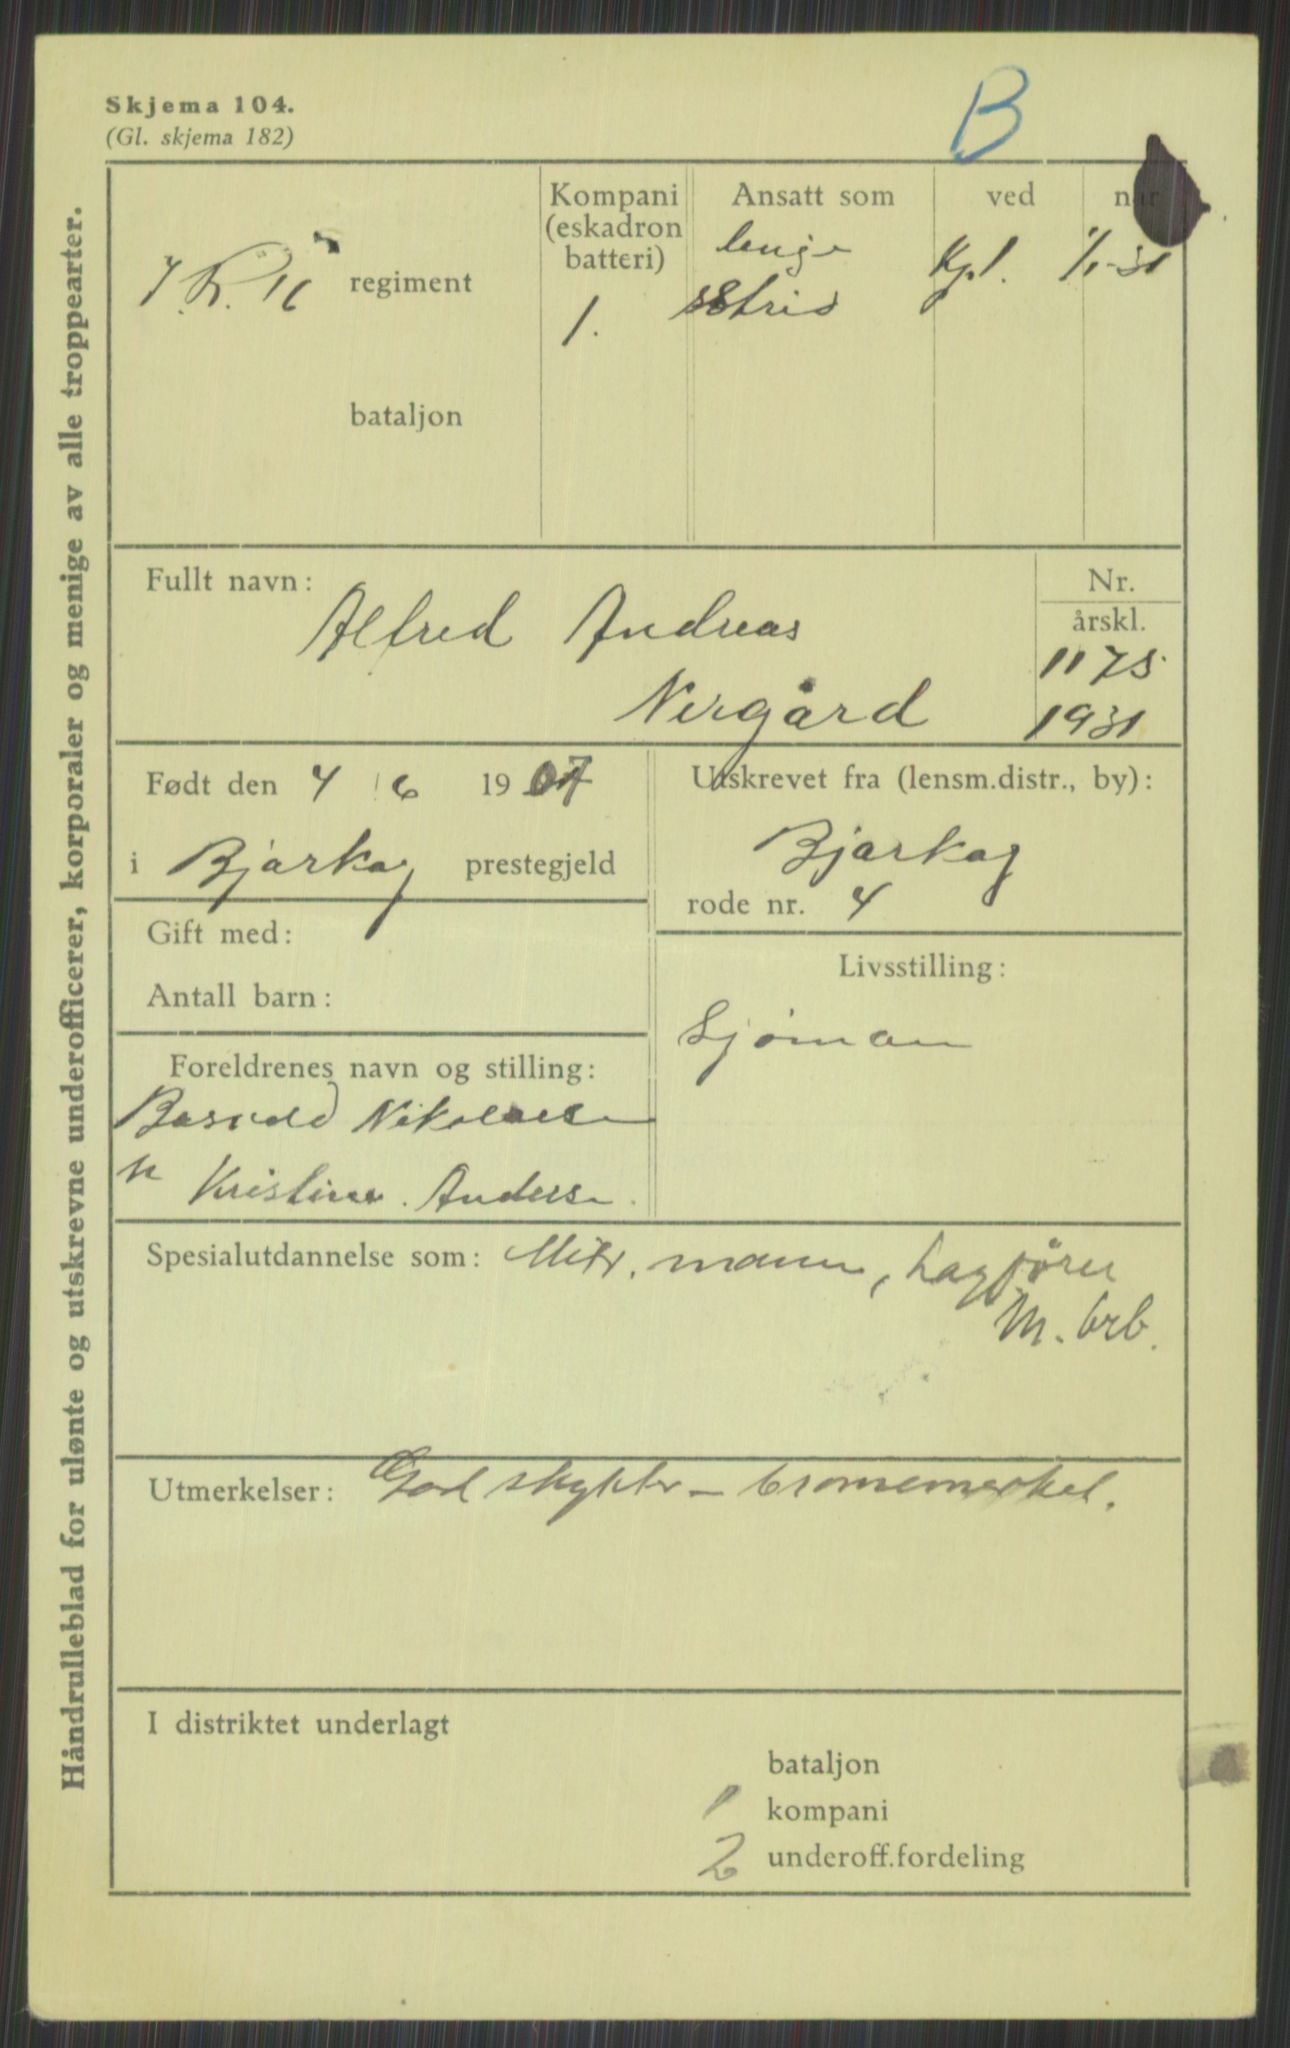 B
Skjema 104.
(Gl. skjema 182)
Håndrulleblad for ulønte og utskrevne underofficerer, korporaler og menige av alle troppearter.
Kompani (eskadron batteri)
Ansatt som
ved
når
I.R. 16 regiment
1.
Kpl. 1/1-31
bataljon
Fullt navn:
Alfred Andreas
Nergård
Nr.
årskl.
1175
1931
Født den 4 6 1907
i Bjarkøy prestegjeld
Utskrevet fra (lensm.distr., by):
Bjarkøy
rode nr. 4
Gift med:
Antall barn:
Livsstilling:
Sjøman
Foreldrenes navn og stilling:
Nikolaisen
Kristine Anders
Spesialutdannelse som: Mitr. mann, Lagfører
M. brb.
Utmerkelser: God skytter - bronsemerket.
I distriktet underlagt
bataljon
1 kompani
2 underoff.fordeling